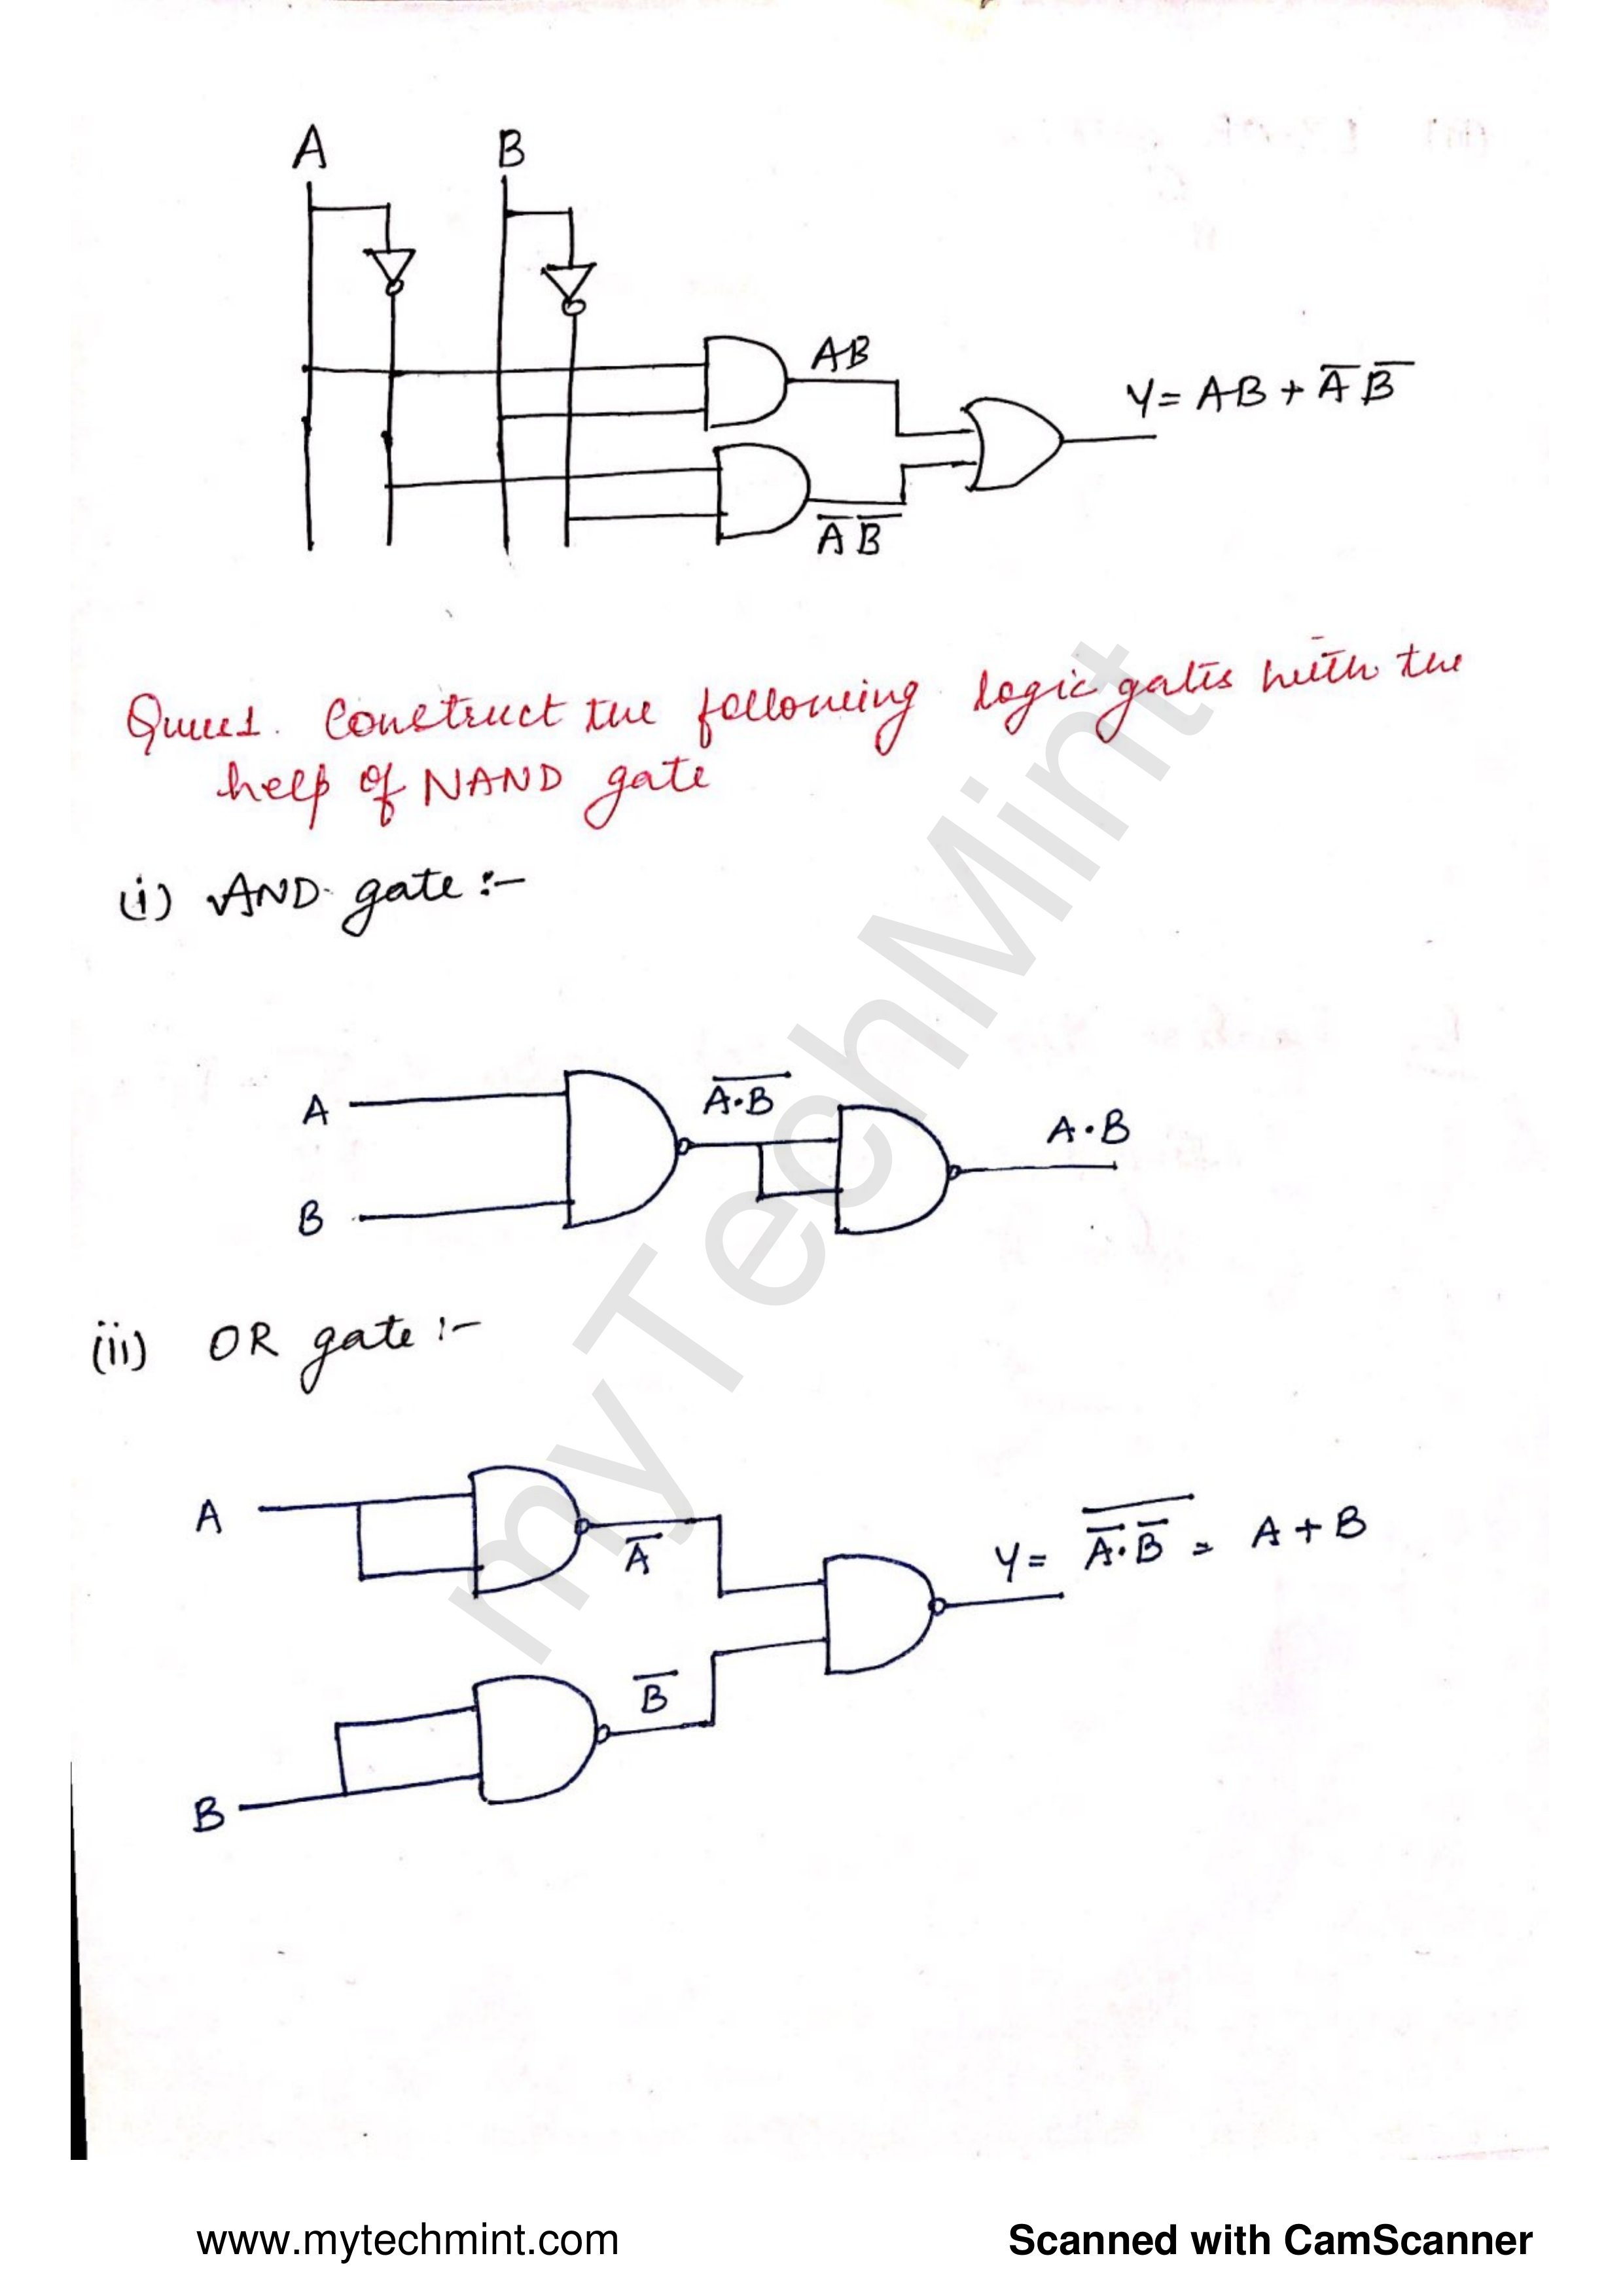 A B
AB
Y = AB + A̅ B̅
A̅ B̅
Ques1. Construct the following logic gates with the
help of NAND gate
(i) AND gate :-
A
A̅·̅B̅
A·B
B
(ii) OR gate :-
A
A̅
Y = \overline{A̅·B̅} = A + B
B̅
B
myTechMint
www.mytechmint.com Scanned with CamScanner